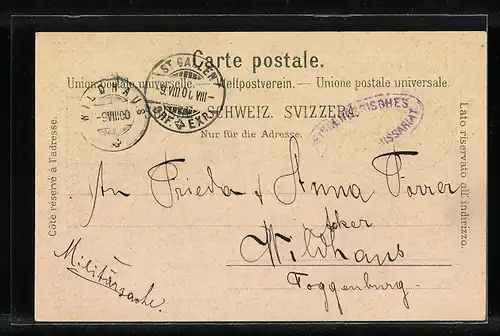 Carte postale.
Union postale universelle. Weltpostverein. — Unione postale universale.
SCHWEIZ. SVIZZERA.
Nur für die Adresse.
Côté réservé à l'adresse.
Lato riservato all' indirizzo.
ST. GALLEN
BRF. EXP.
WILDHAUS
An Frieda & Anna Forrer
Wildhaus
Toggenburg.
Militärsache.